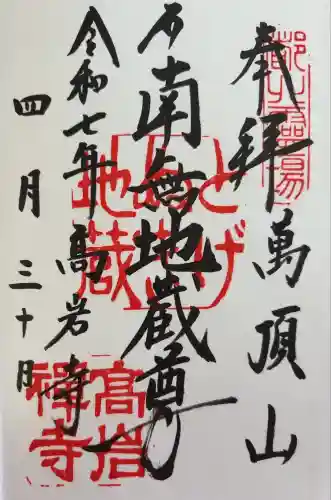 奉拝 萬頂山
南無地蔵尊
令和七年 高岩寺
四月三十日
とげ
ぬき
地蔵
高岩
禅寺